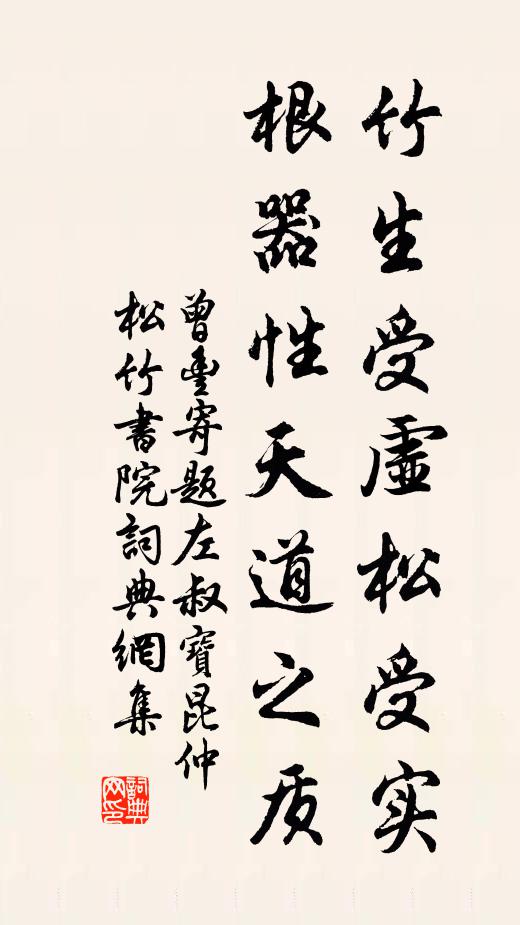 竹生受虛松受实
根器性天道之质
曾豐寄题左叔寶昆仲
松竹書院詞典網集
詞典
网印